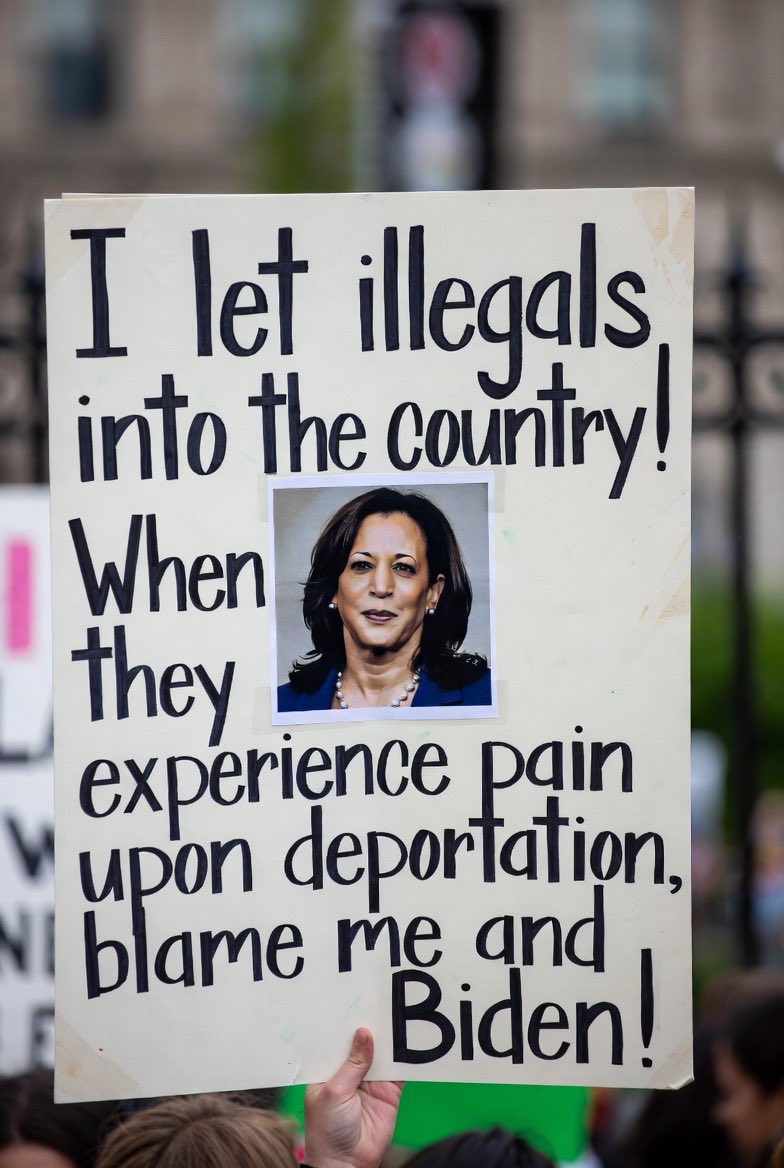 I let illegals
into the country!
When
they
experience pain
upon deportation,
blame me and
Biden!